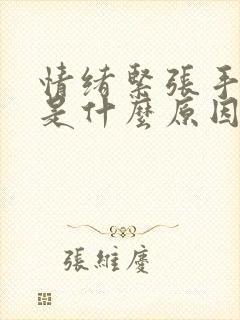 情绪緊張手
是什麼原因
張維慶